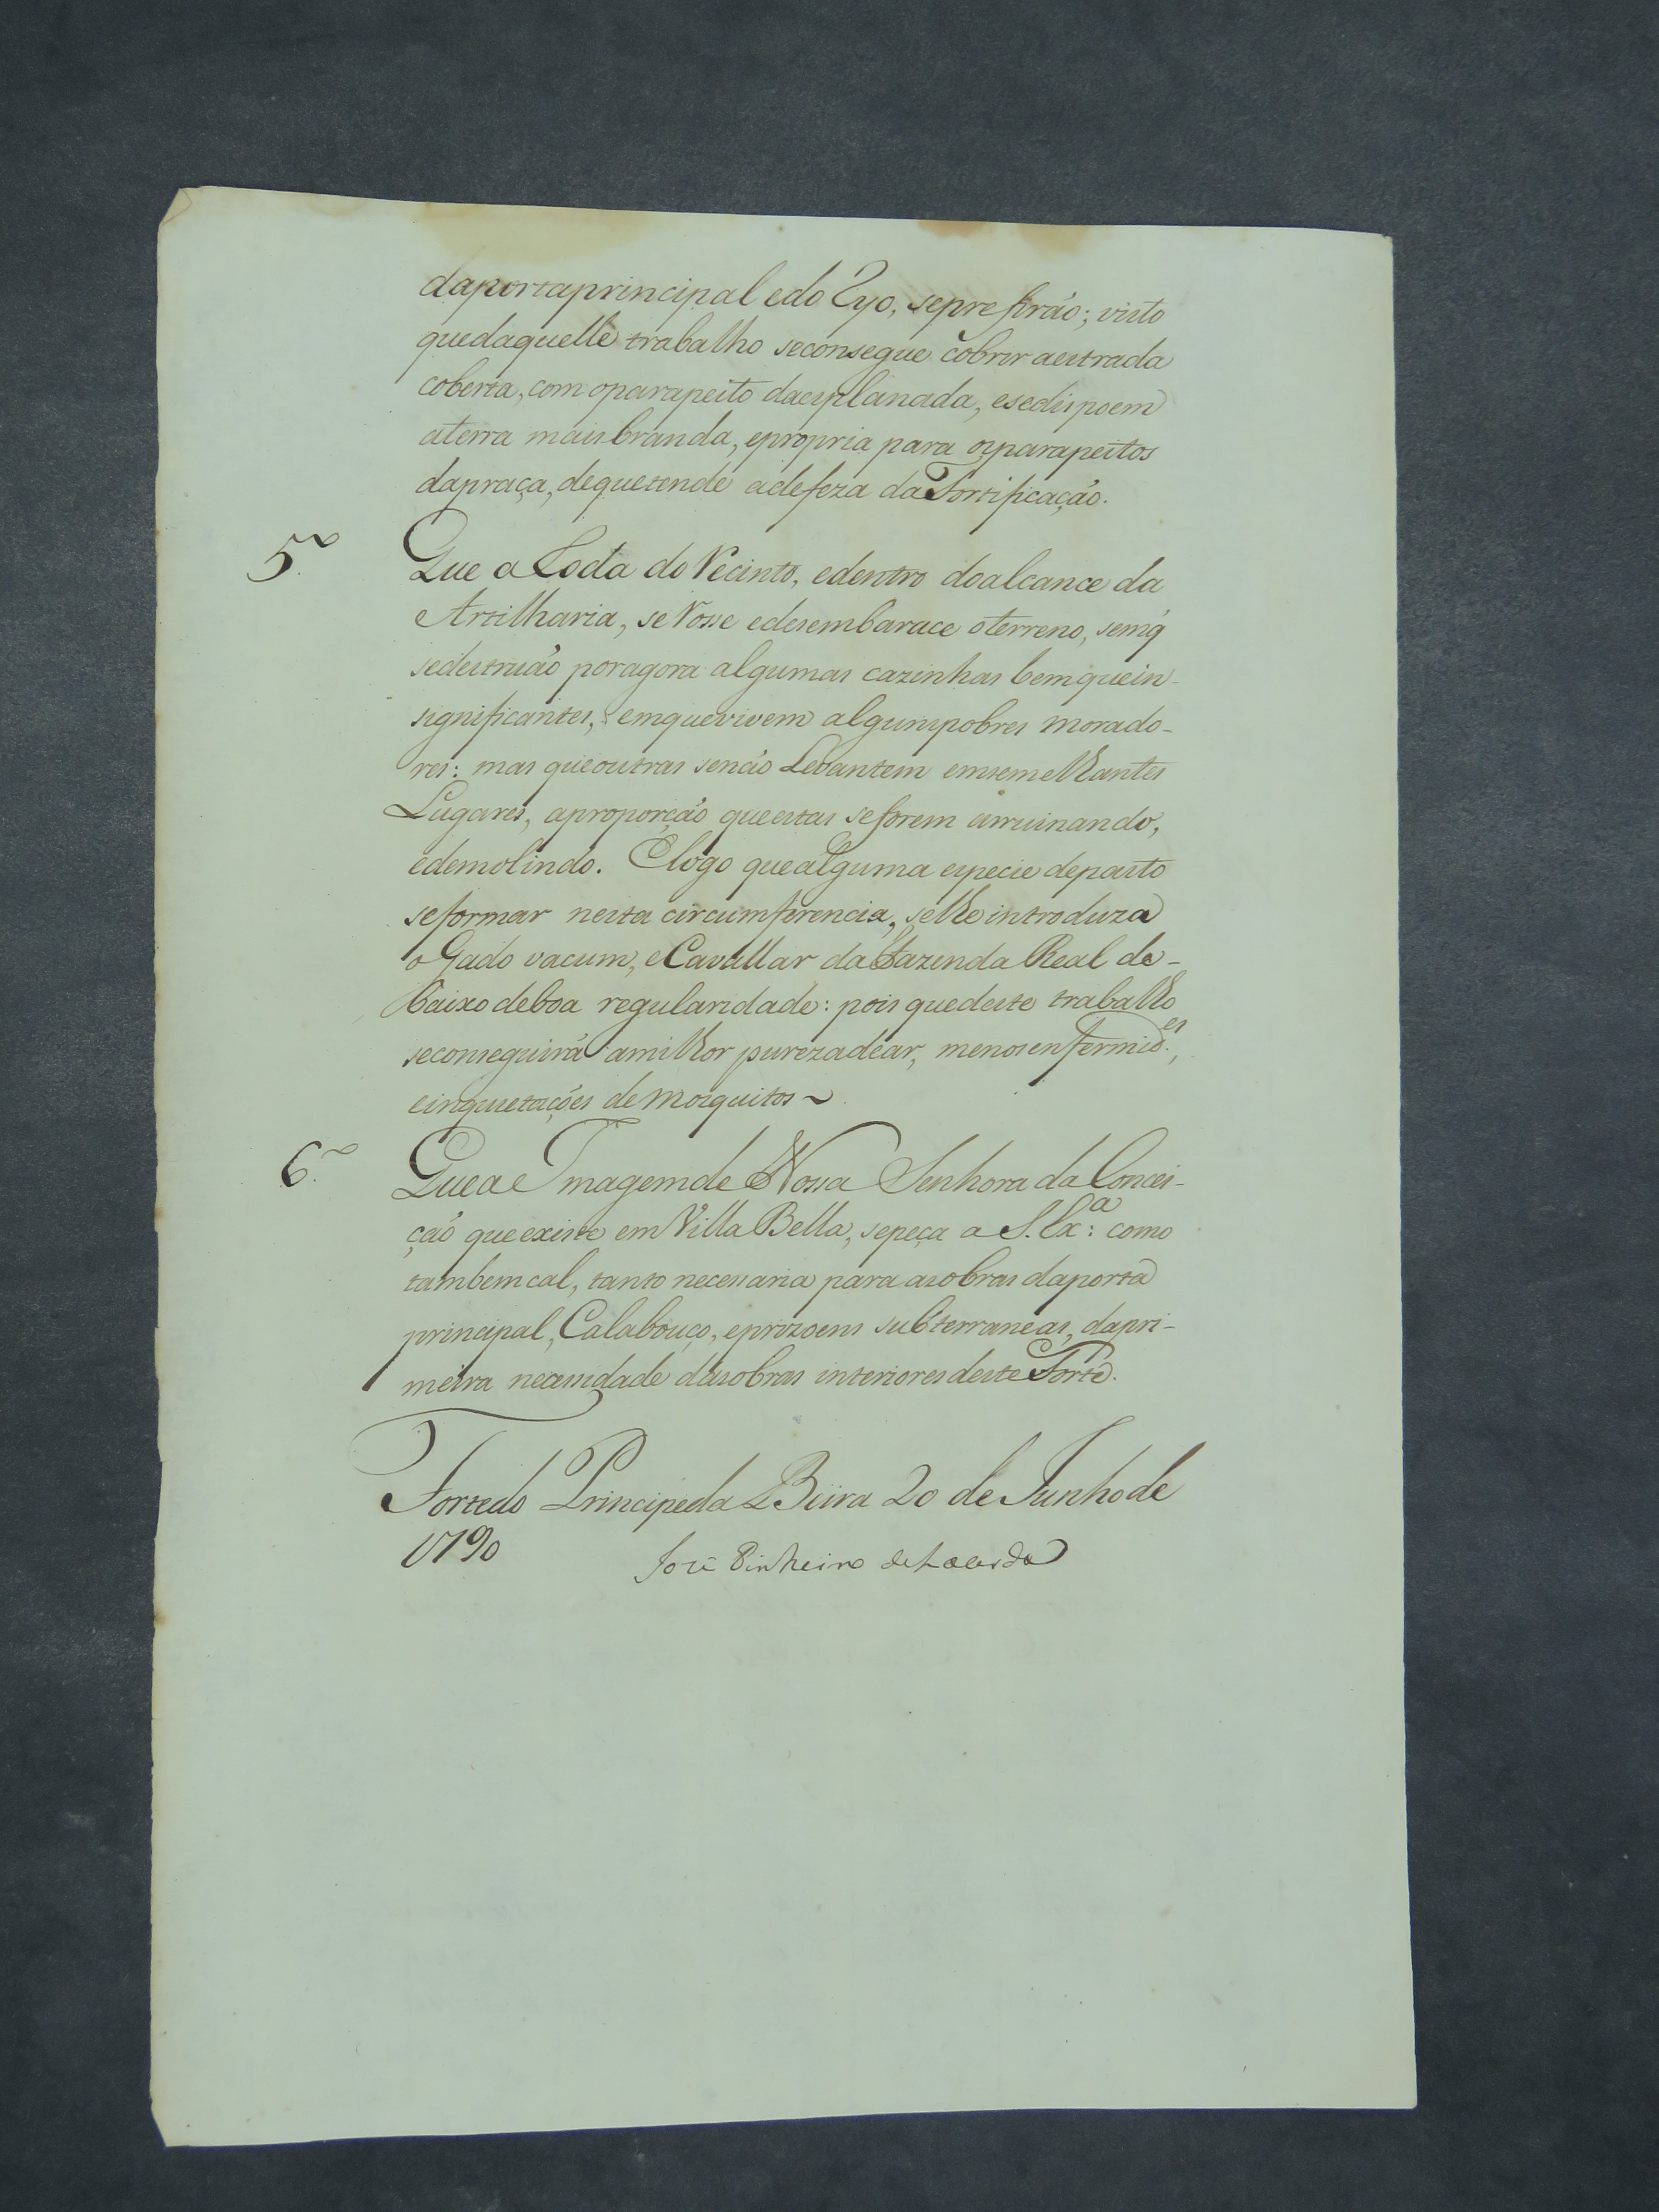 daportaprincipal edo Ryo, seprefirão; visto
quedaquelle trabalho seconsegue cobrir aestrada
coberta, com oparapeito daesplanada, esedispoem
aterra maisbranda, epropria para osparapeitos
dapraça, dequetende adefeza da Fortificação.
5.º Que a Roda do Recinto, edentro doalcance da
Artilharia, se Rosse edesembarace oterreno, semq̃
sedestruão poragora algumas cazinhas bemquein-
significantes, emquevivem algunspobres morado-
res: mas queoutras senão Levantem emsemelhantes
Lugares, aproporção queestas seforem arruinando,
edemolindo. Elogo quealguma especie depasto
seformar nesta circumferencia, selheintroduza
o Gado vacum, eCavallar da Fazenda Real de-
baixo deboa regularidade: pois quedeste trabalho
seconseguirá amilhor purezadear, menosenfermid.es,
einquietações de mosquitos ~
6.º Quea Imagemde Nossa Senhora da Concei-
ção queexiste em Villa Bella, sepeça a S. Ex.ª: como
tambemcal, tanto necessaria para asobras daporta
principal, Calabouço, eprizoens subterraneas, dapri-
meira necessidade dasobras interioresdeste Forte.
Fortedo Principeda Beira 20 de Junhode
1790
José Pinheiro deLacerda